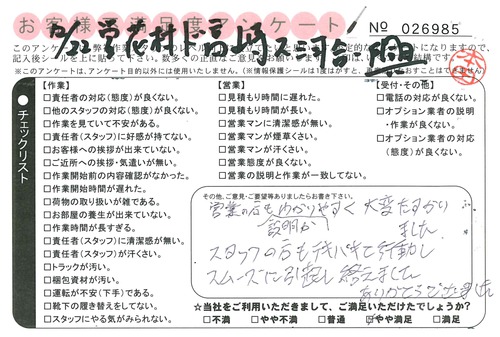 お客様満足度アンケート
No 026985
【作業】
□責任者の対応(態度)が良くない。
□他のスタッフの対応(態度)が良くない。
□作業を見ていて不安がある。
□責任者(スタッフ)に好感が持てない。
□お客様への挨拶が出来ていない。
□ご近所への挨拶・気遣いが無い。
□作業開始前の内容確認がなかった。
□作業開始時間が遅れた。
□荷物の取り扱いが雑である。
□お部屋の養生が出来ていない。
□作業時間が長すぎる。
□責任者(スタッフ)に清潔感が無い。
□責任者(スタッフ)が汗くさい。
□トラックが汚い。
□梱包資材が汚い。
□運転が不安(下手)である。
□靴下の履き替えをしてない。
□スタッフにやる気がみられない。
【営業】
□見積もり時間に遅れた。
□見積もり時間が長い。
□営業マンに清潔感が無い。
□営業マンが煙草くさい。
□営業マンが汗くさい。
□営業態度が良くない。
□営業の説明と作業が一致してない。
【受付・その他】
□電話の対応が良くない。
□オプション業者の説明
・作業が良くない。
□オプション業者の対応
(態度)が良くない。
チェックリスト
その他、ご意見・ご要望等ありましたらお書き下さい。
営業の方もわかりやすく 大変たすかり
説明が
ました
スタッフの方もテキパキと行動し
スムーズに引越し終えました
ありがとうございました
☆当社をご利用いただきまして、ご満足いただけたでしょうか?
□不満 □やや不満 □普通 ☑やや満足 □満足